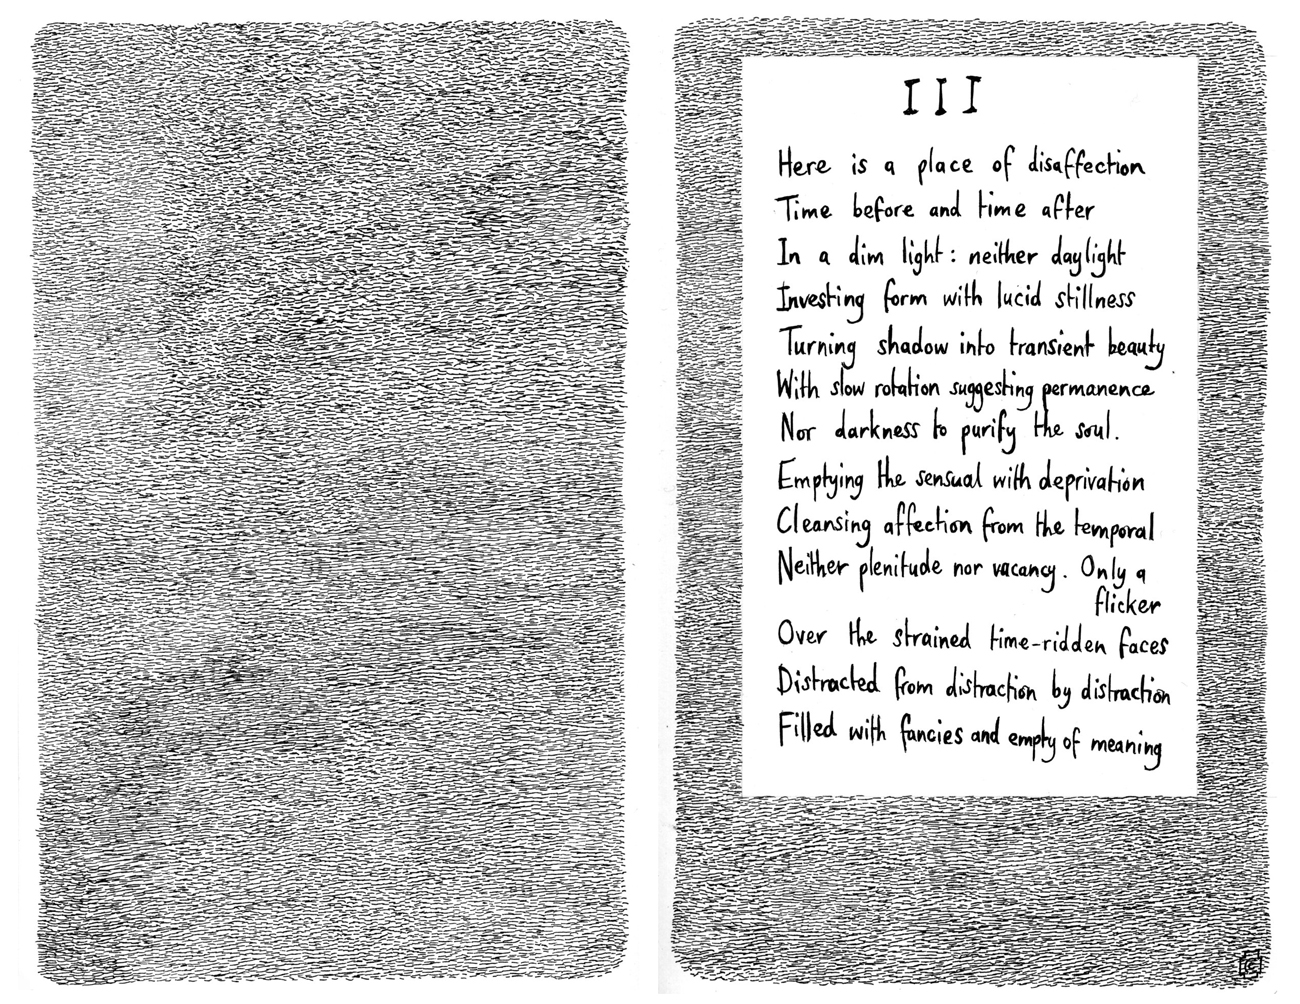 III
Here is a place of disaffection
Time before and time after
In a dim light: neither daylight
Investing form with lucid stillness
Turning shadow into transient beauty
With slow rotation suggesting permanence
Nor darkness to purify the soul.
Emptying the sensual with deprivation
Cleansing affection from the temporal
Neither plenitude nor vacancy. Only a
flicker
Over the strained time-ridden faces
Distracted from distraction by distraction
Filled with fancies and empty of meaning